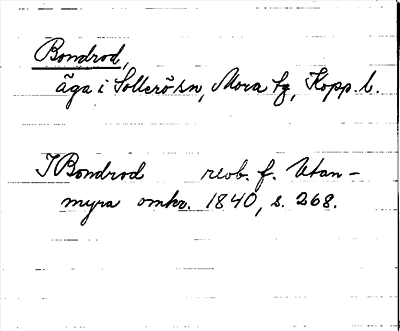 Bondrod,
äga i Sollerö sn, Mora tg, Kopp. l.
I Bondrod reob. f. Utan-
myra omkr. 1840, s. 268.